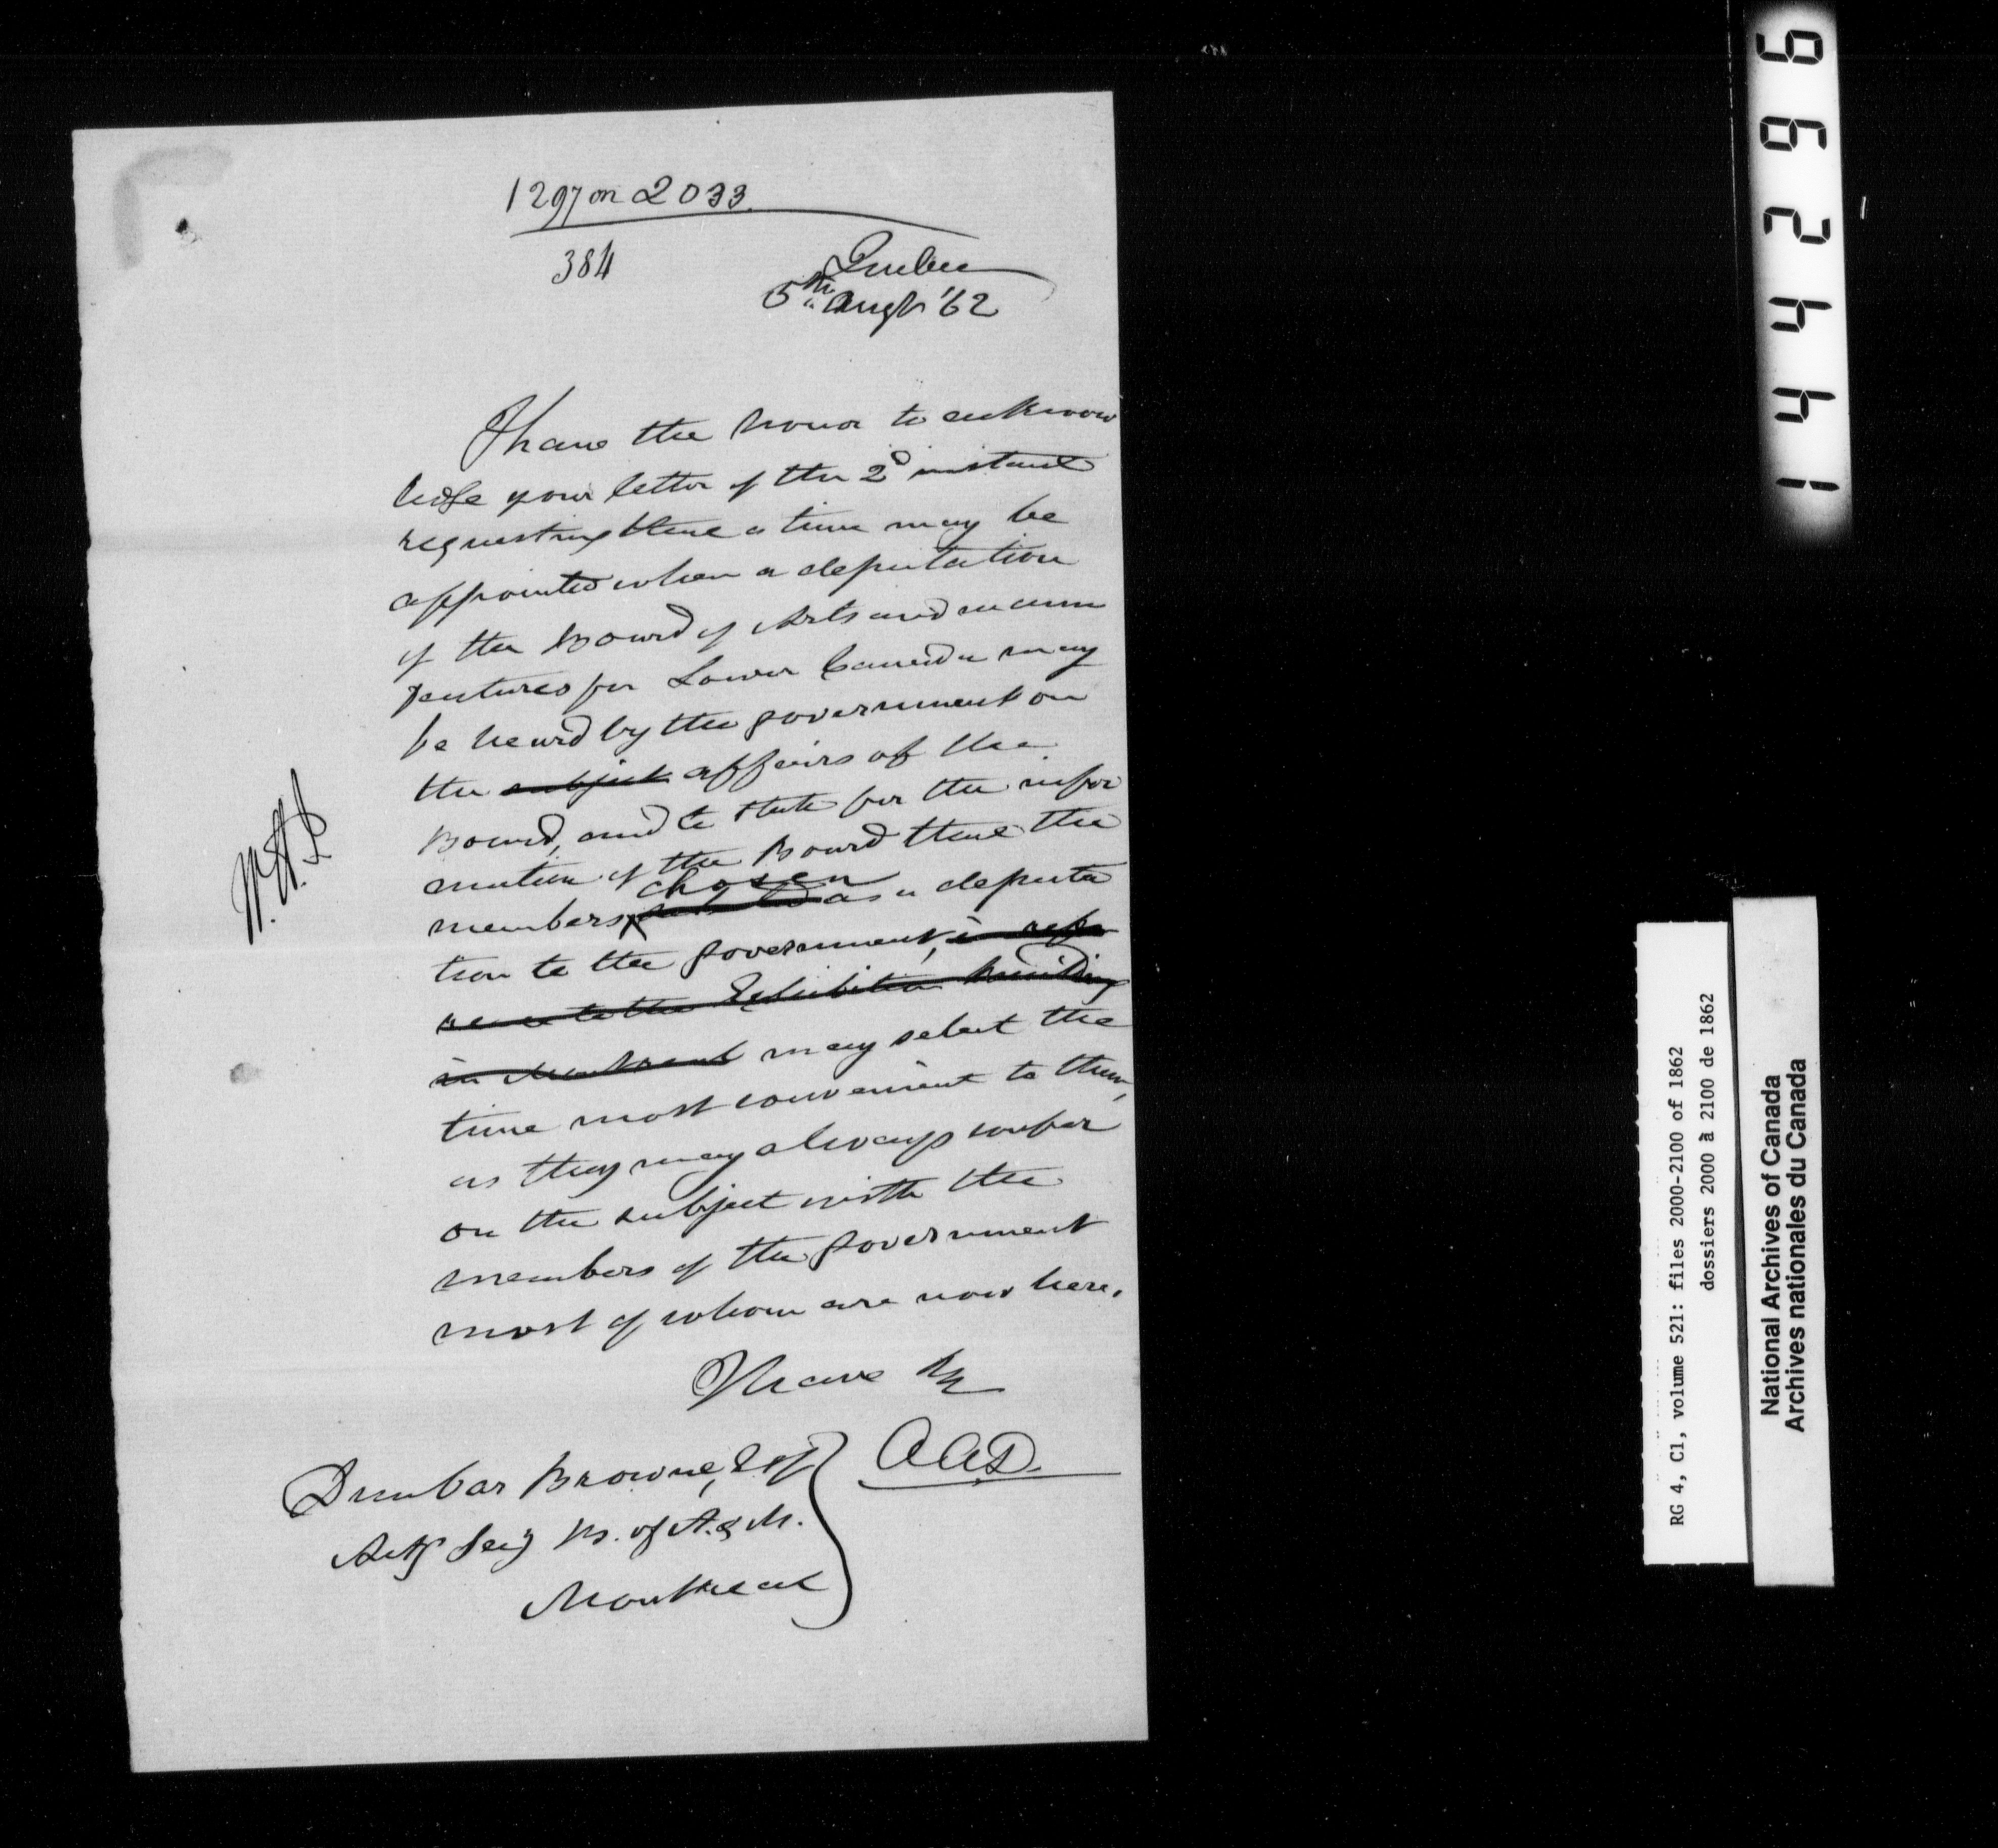 1297 on 2033
384
Quebec
5th Augt '62
I have the honor to acknow
ledge your letter of the 2d instant
requesting that a time may be
appointed when a deputation
of the Board of Arts and manu
factures for Lower Canada may
be heard by the government on
the subject affairs of the
Board, and to state for the infor
mation of the Board that the
chosen
members as a deputa
tion to the government, in refer
ence to the Exhibition building
in Montreal may select the
time most convenient to them,
as they may always confer
on the subject with the
members of the government
most of whom are now here.
I have &c
A A D.
Dunbar Browne, Esq
Actg Secy B. of A. & M.
Montreal
144296
RG 4, C1, volume 521: files 2000-2100 of 1862
dossiers 2000 à 2100 de 1862
National Archives of Canada
Archives nationales du Canada